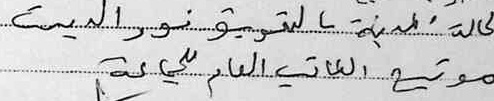 لحالة المدنية بالتفويض نور الدين
موتيح الكاتب العام للجماعة